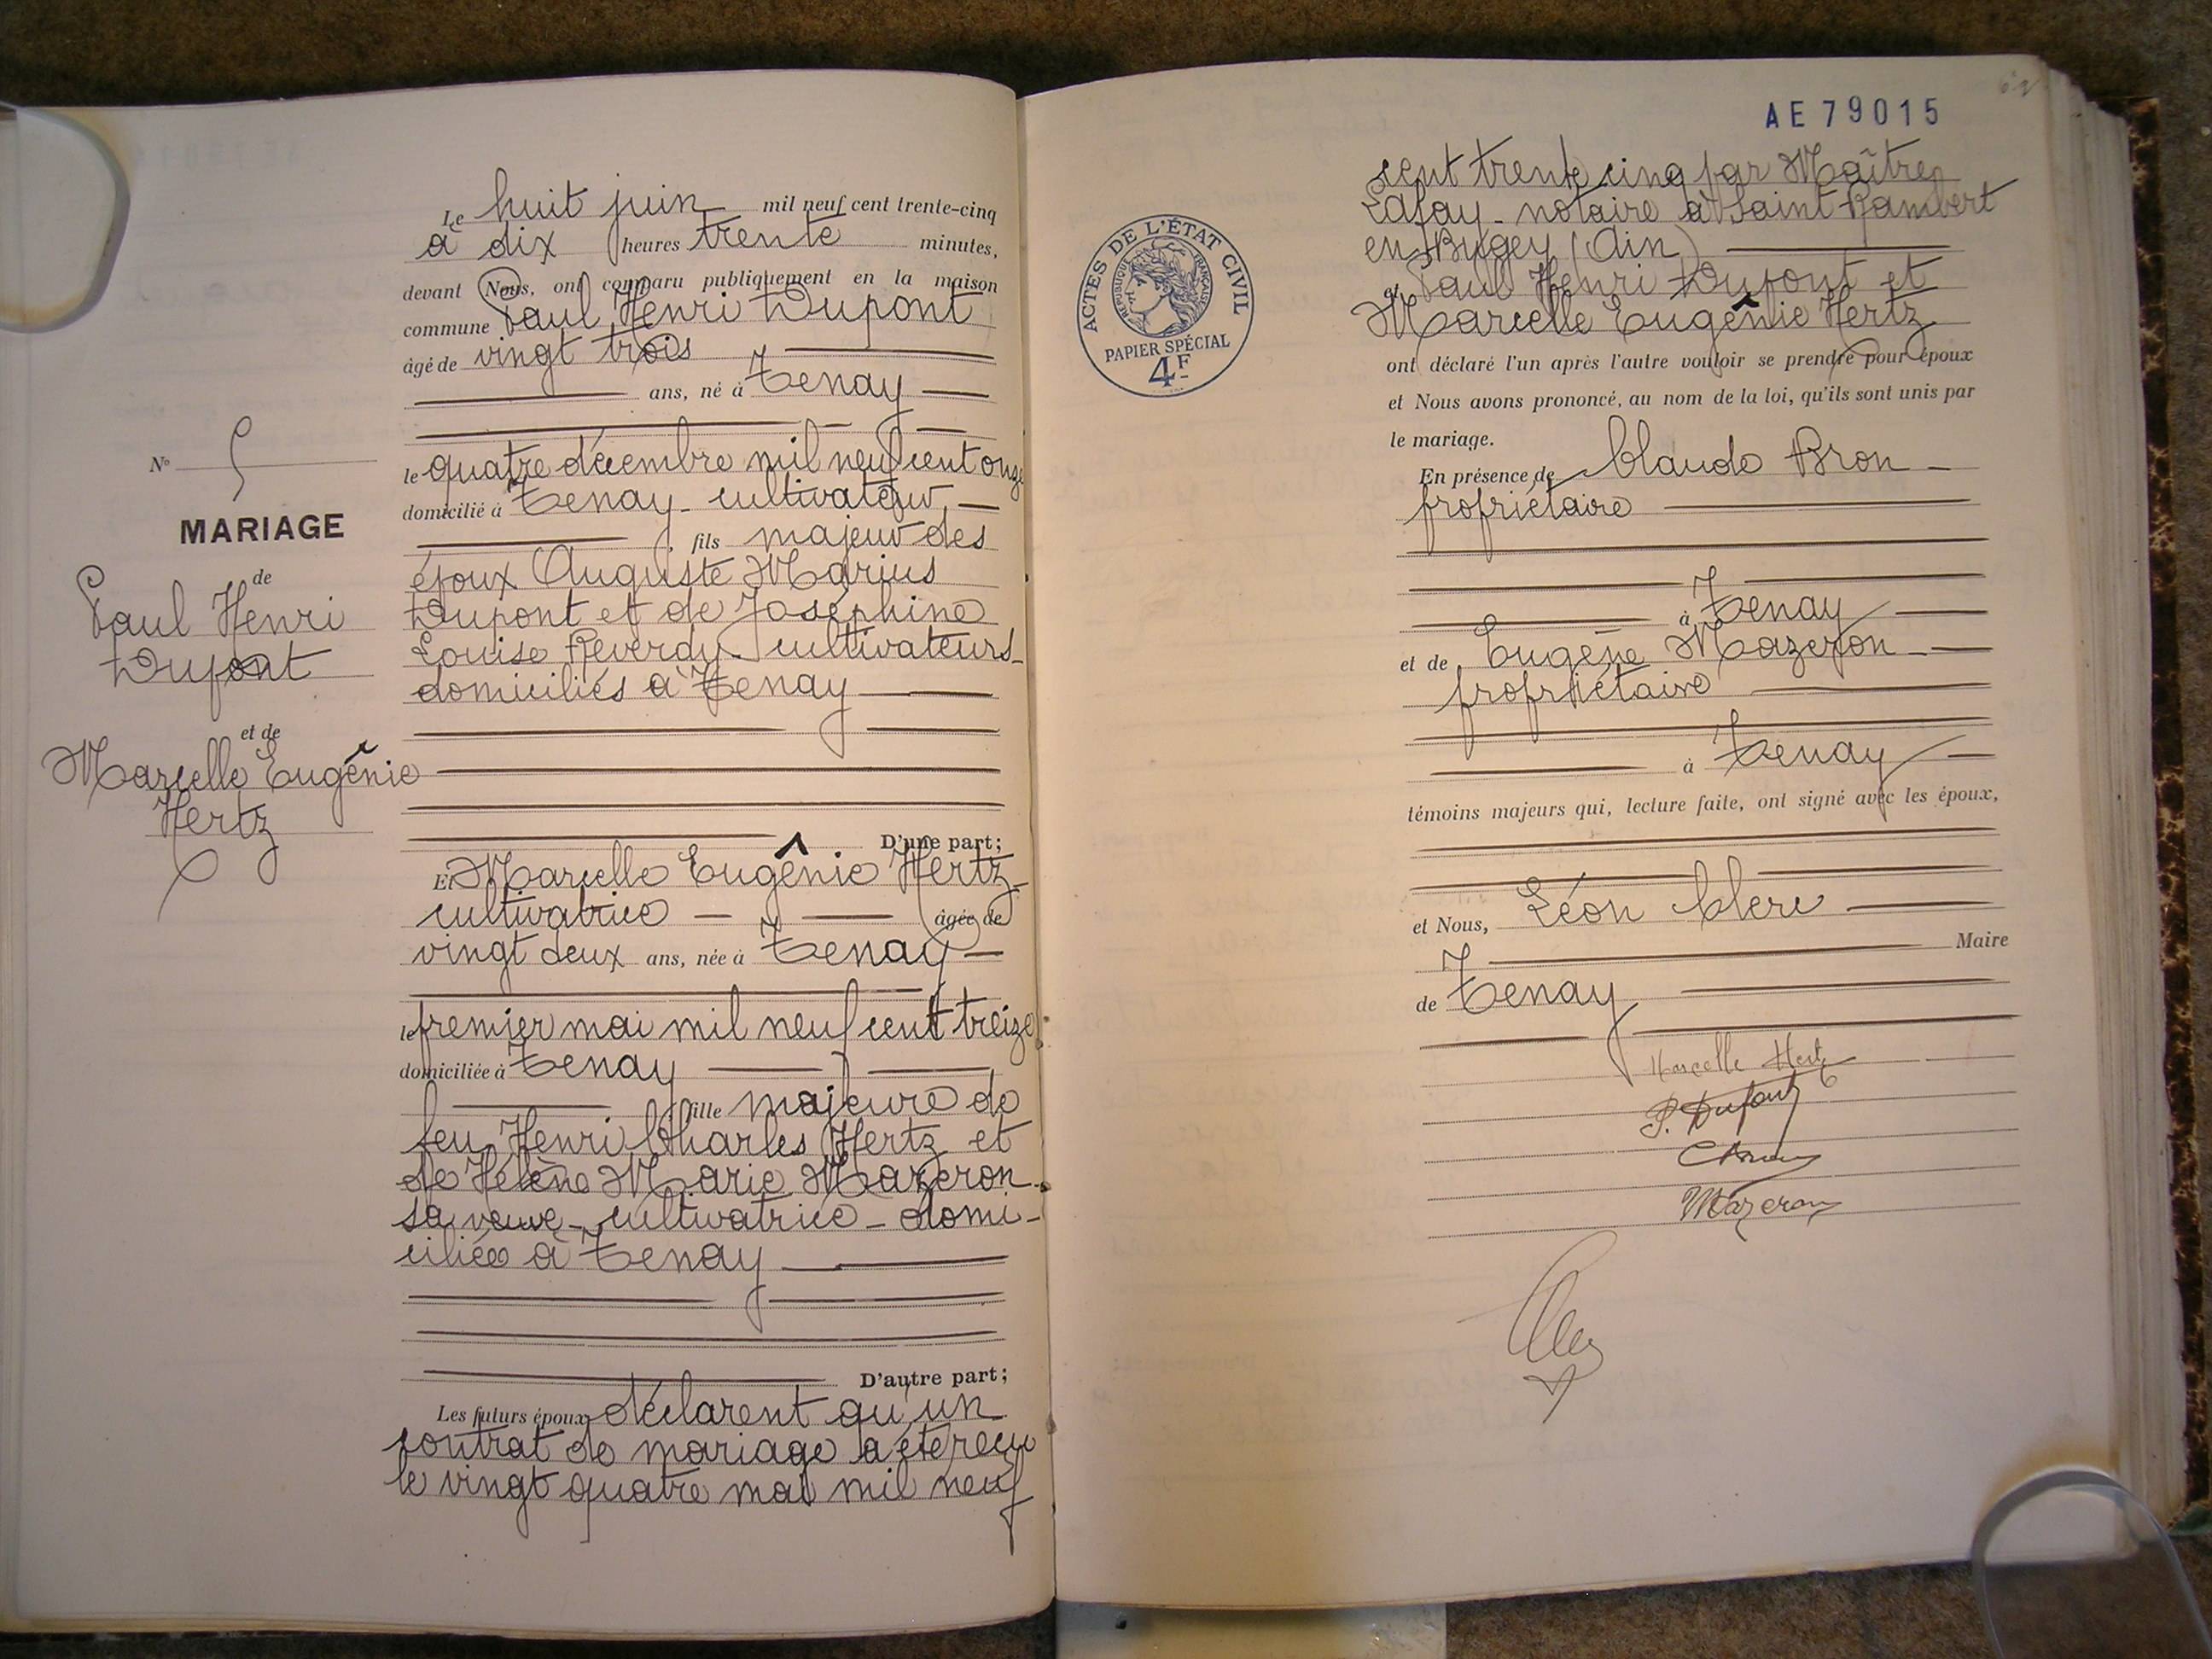 N° 5
MARIAGE
de
Paul Henri
Dupont
et de
Marcelle Eugênie
Hertz
Le huit juin mil neuf cent trente-cinq
à dix heures trente minutes,
devant Nous, ont comparu publiquement en la maison
commune Paul Henri Dupont
âgé de vingt trois
ans, né à Tenay
le quatre décembre mil neuf cent onze
domicilié à Tenay - cultivateur,
fils majeur des
époux Auguste Marius
Dupont et de Joséphine
Louise Reverdy - cultivateurs
domiciliés à Tenay
D'une part;
Et Marcelle Eugênie Hertz
cultivatrice âgée de
vingt deux ans, née à Tenay
le premier mai mil neuf cent treize
domiciliée à Tenay
fille majeure de
feu Henri Charles Hertz et
de Hélène Marie Mazeron
sa veuve - cultivatrice - domi-
ciliée à Tenay
D'autre part;
Les futurs époux déclarent qu'un
contrat de mariage a été reçu
le vingt quatre mai mil neuf
AE 79015
ACTES DE L'ÉTAT CIVIL
RÉPUBLIQUE FRANÇAISE
PAPIER SPÉCIAL
4F
cent trente cinq par Maître
Lafay - notaire à Saint Rambert
en Bugey (Ain)
et Paul Henri Dupont et
Marcelle Eugênie Hertz
ont déclaré l'un après l'autre vouloir se prendre pour époux
et Nous avons prononcé, au nom de la loi, qu'ils sont unis par
le mariage.
En présence de Claude Bron -
propriétaire
à Tenay
et de Eugène Mazeron
propriétaire
à Tenay
témoins majeurs qui, lecture faite, ont signé avec les époux,
et Nous, Léon Clerc
Maire
de Tenay
Marcelle Hertz
P. Dupont
Mazeron